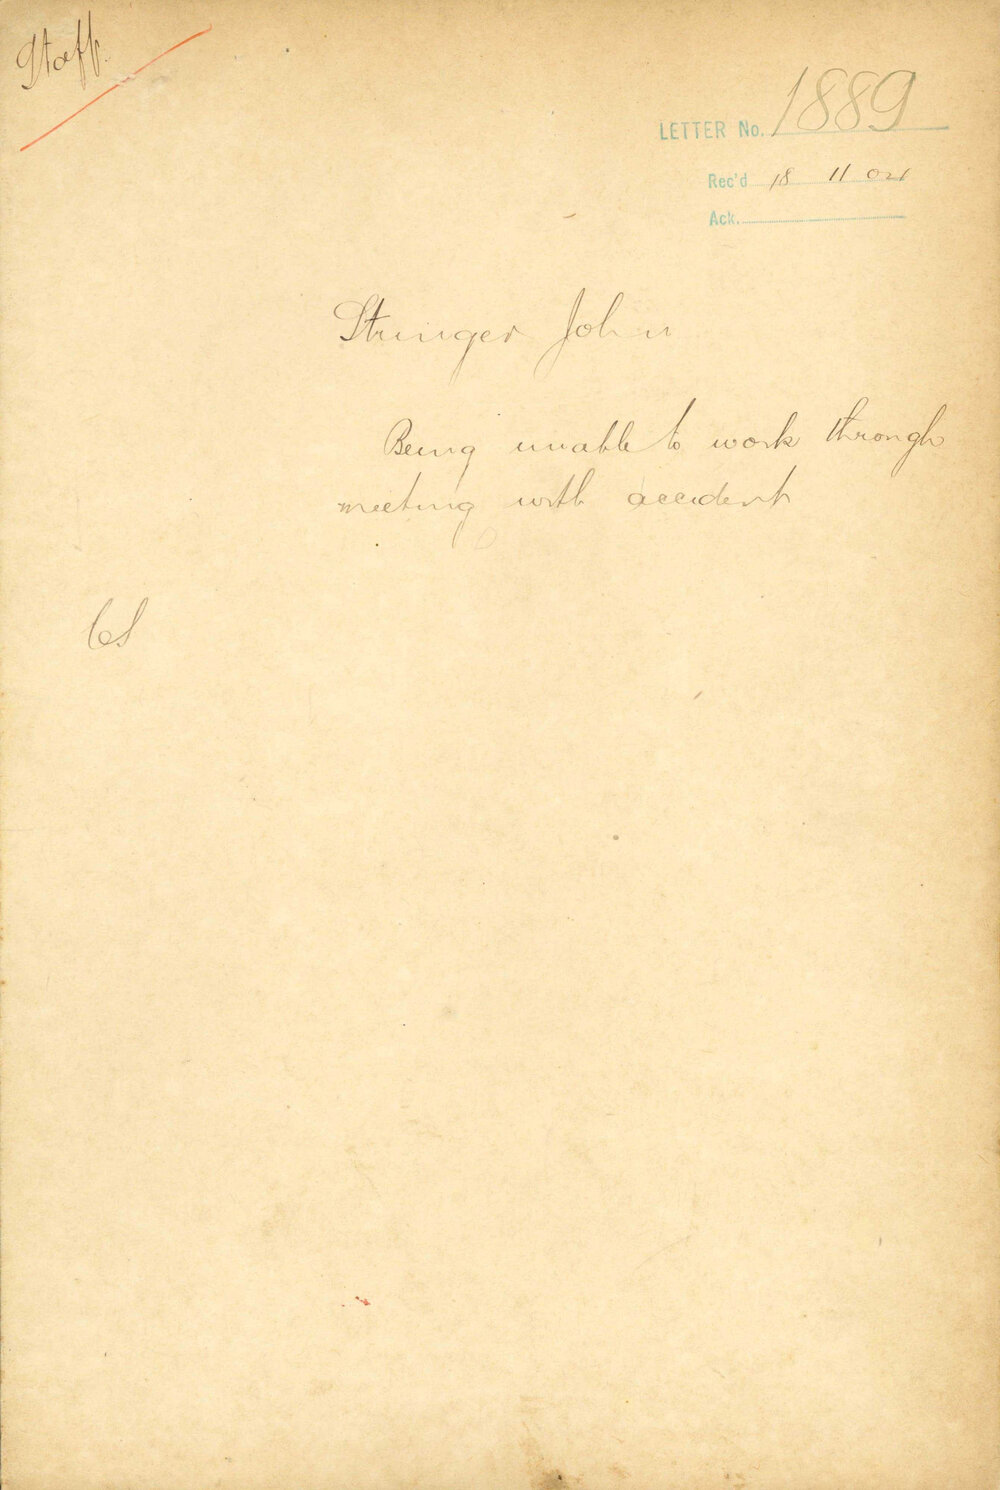 Staff.
LETTER No. 1889
Rec'd 18 11 04
Ack.
Stringer John
Being unable to work through
meeting with accident